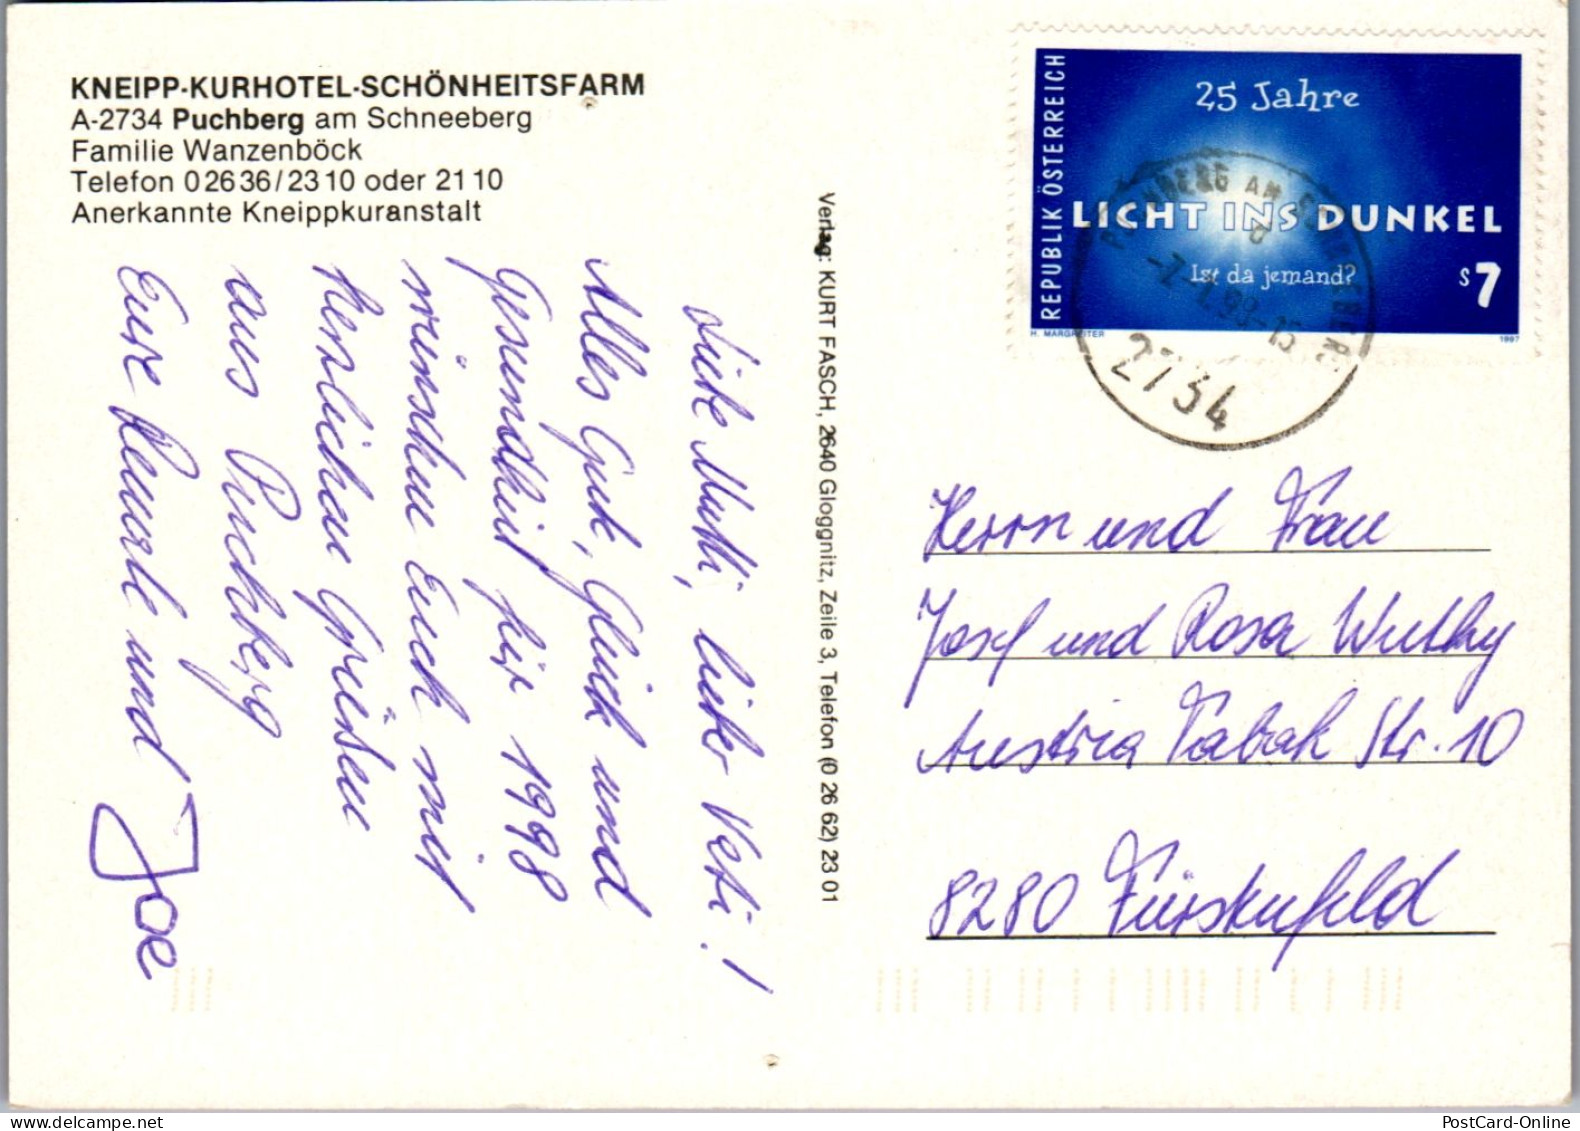 KNEIPP-KURHOTEL-SCHÖNHEITSFARM
A-2734 Puchberg am Schneeberg
Familie Wanzenböck
Telefon 0 26 36 / 23 10 oder 21 10
Anerkannte Kneippkuranstalt
Liebe Mutti, lieber Veti!
Alles Gute, Glück und
Gesundheit für 1998
wünschen Euch mit
herzlichen Grüßen
aus Puchberg
Eure Renate und
Joe
Verlag: KURT FASCH, 2640 Gloggnitz, Zeile 3, Telefon (0 26 62) 23 01
REPUBLIK ÖSTERREICH
25 Jahre
LICHT INS DUNKEL
Ist da jemand?
S 7
H. MARGREITER
1997
PUCHBERG AM SCHNEEBERG
2734
Herrn und Frau
Josef und Rosa Wuthy
Austria Tabak Str. 10
8280 Fürstenfeld
PostCard-Online